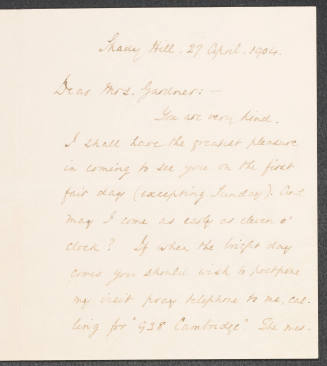 Shady Hill. 27 April. 1904.
Dear Mrs. Gardner: —
You are very kind.
I shall have the greatest pleasure
in coming to see you on the first
fair day (excepting Sunday). And
may I come as early as eleven o'
clock? If when the bright day
comes you should wish to postpone
my visit pray telephone to me, cal-
ling for "938 Cambridge" The mes-